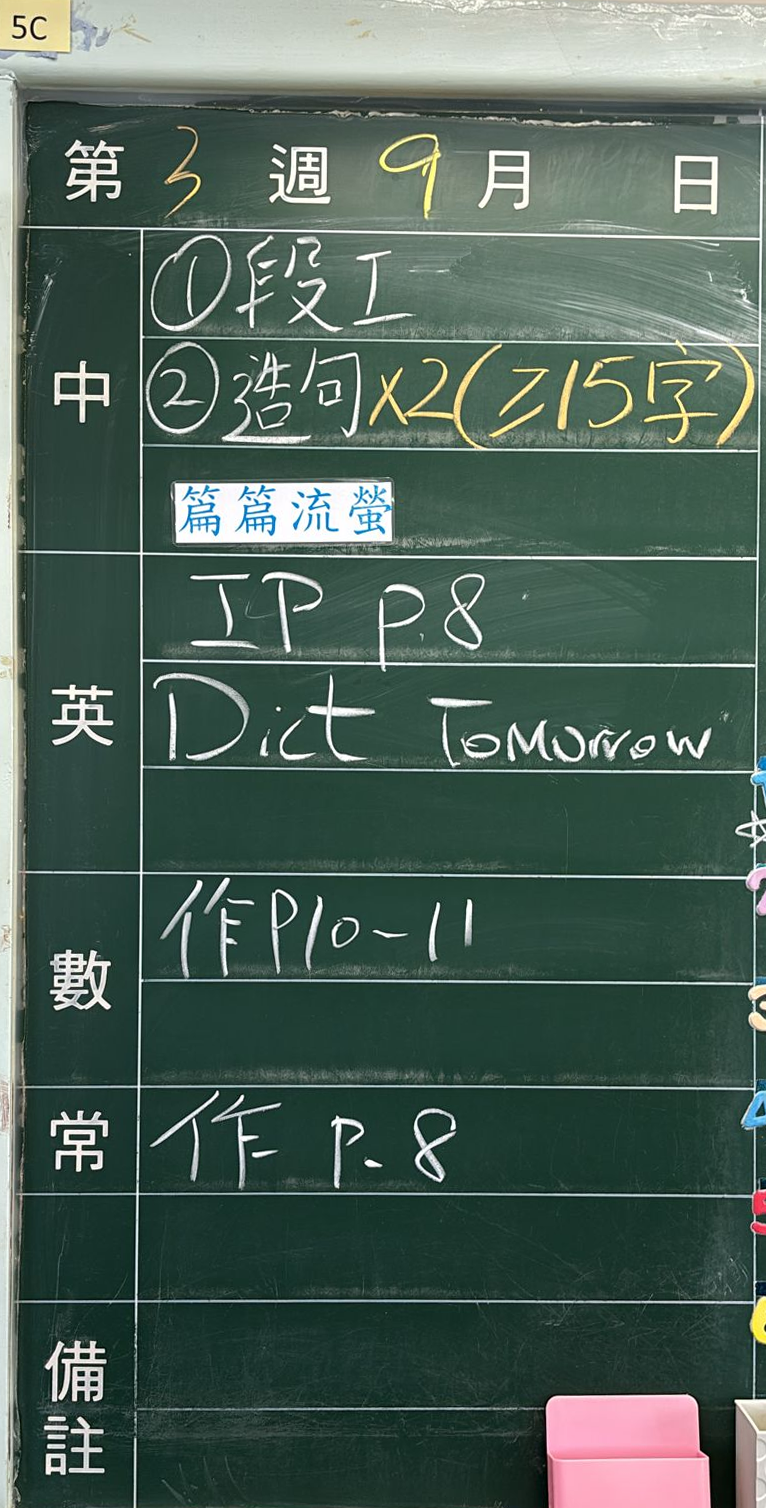 5C
第 3 週 9 月 日
中
①段工
②造句x2(≥15字)
篇篇流螢
英
IP P.8
Dict Tomorrow
數
作P10-11
常
作 P.8
備註